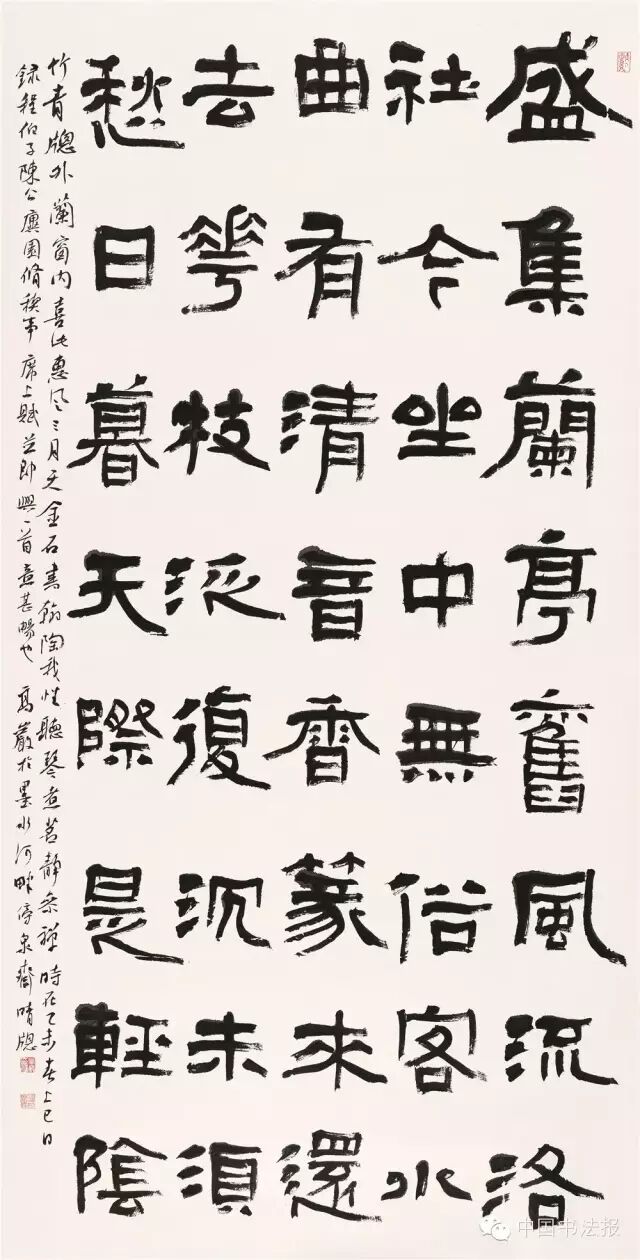 盛集蘭亭舊風流洛
社今坐中無俗客水
曲有清音香篆來還
去花枝泛復沉未須
愁日暮天際是輕陰
竹青牕外蘭窗内喜沐惠風三月天金石書翰陶我性聽琴煮茗靜參禪時在乙未春上巳日
録程伯子陳公廙園脩禊事席上賦並即興一首意甚暢也高嚴於墨水河畔泉齋晴牕
中国书法报